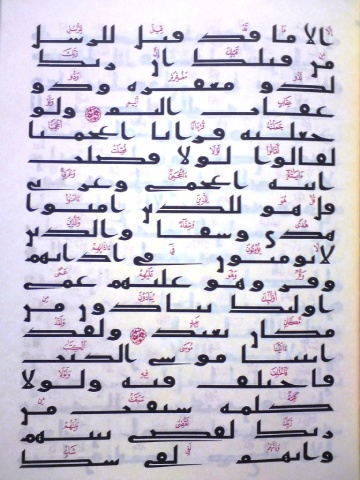 الا ما قد قيل للرسل
من قبلك ان ربك
لذو مغفرة وذو
عقاب اليم ولو
جعلنه قرانا اعجميا
لقالوا لولا فصلت
ايته اعجمى وعربى
قل هو للذين امنوا
هدى وشفا والذين
لا يومنون فى اذانهم
وقر وهو عليهم عمى
اوليك ينادون من
مكان بعيد ولقد
اتينا موسى الكتب
فاختلف فيه ولولا
كلمة سبقت من
ربك لقضى بينهم
وانهم لفى شك